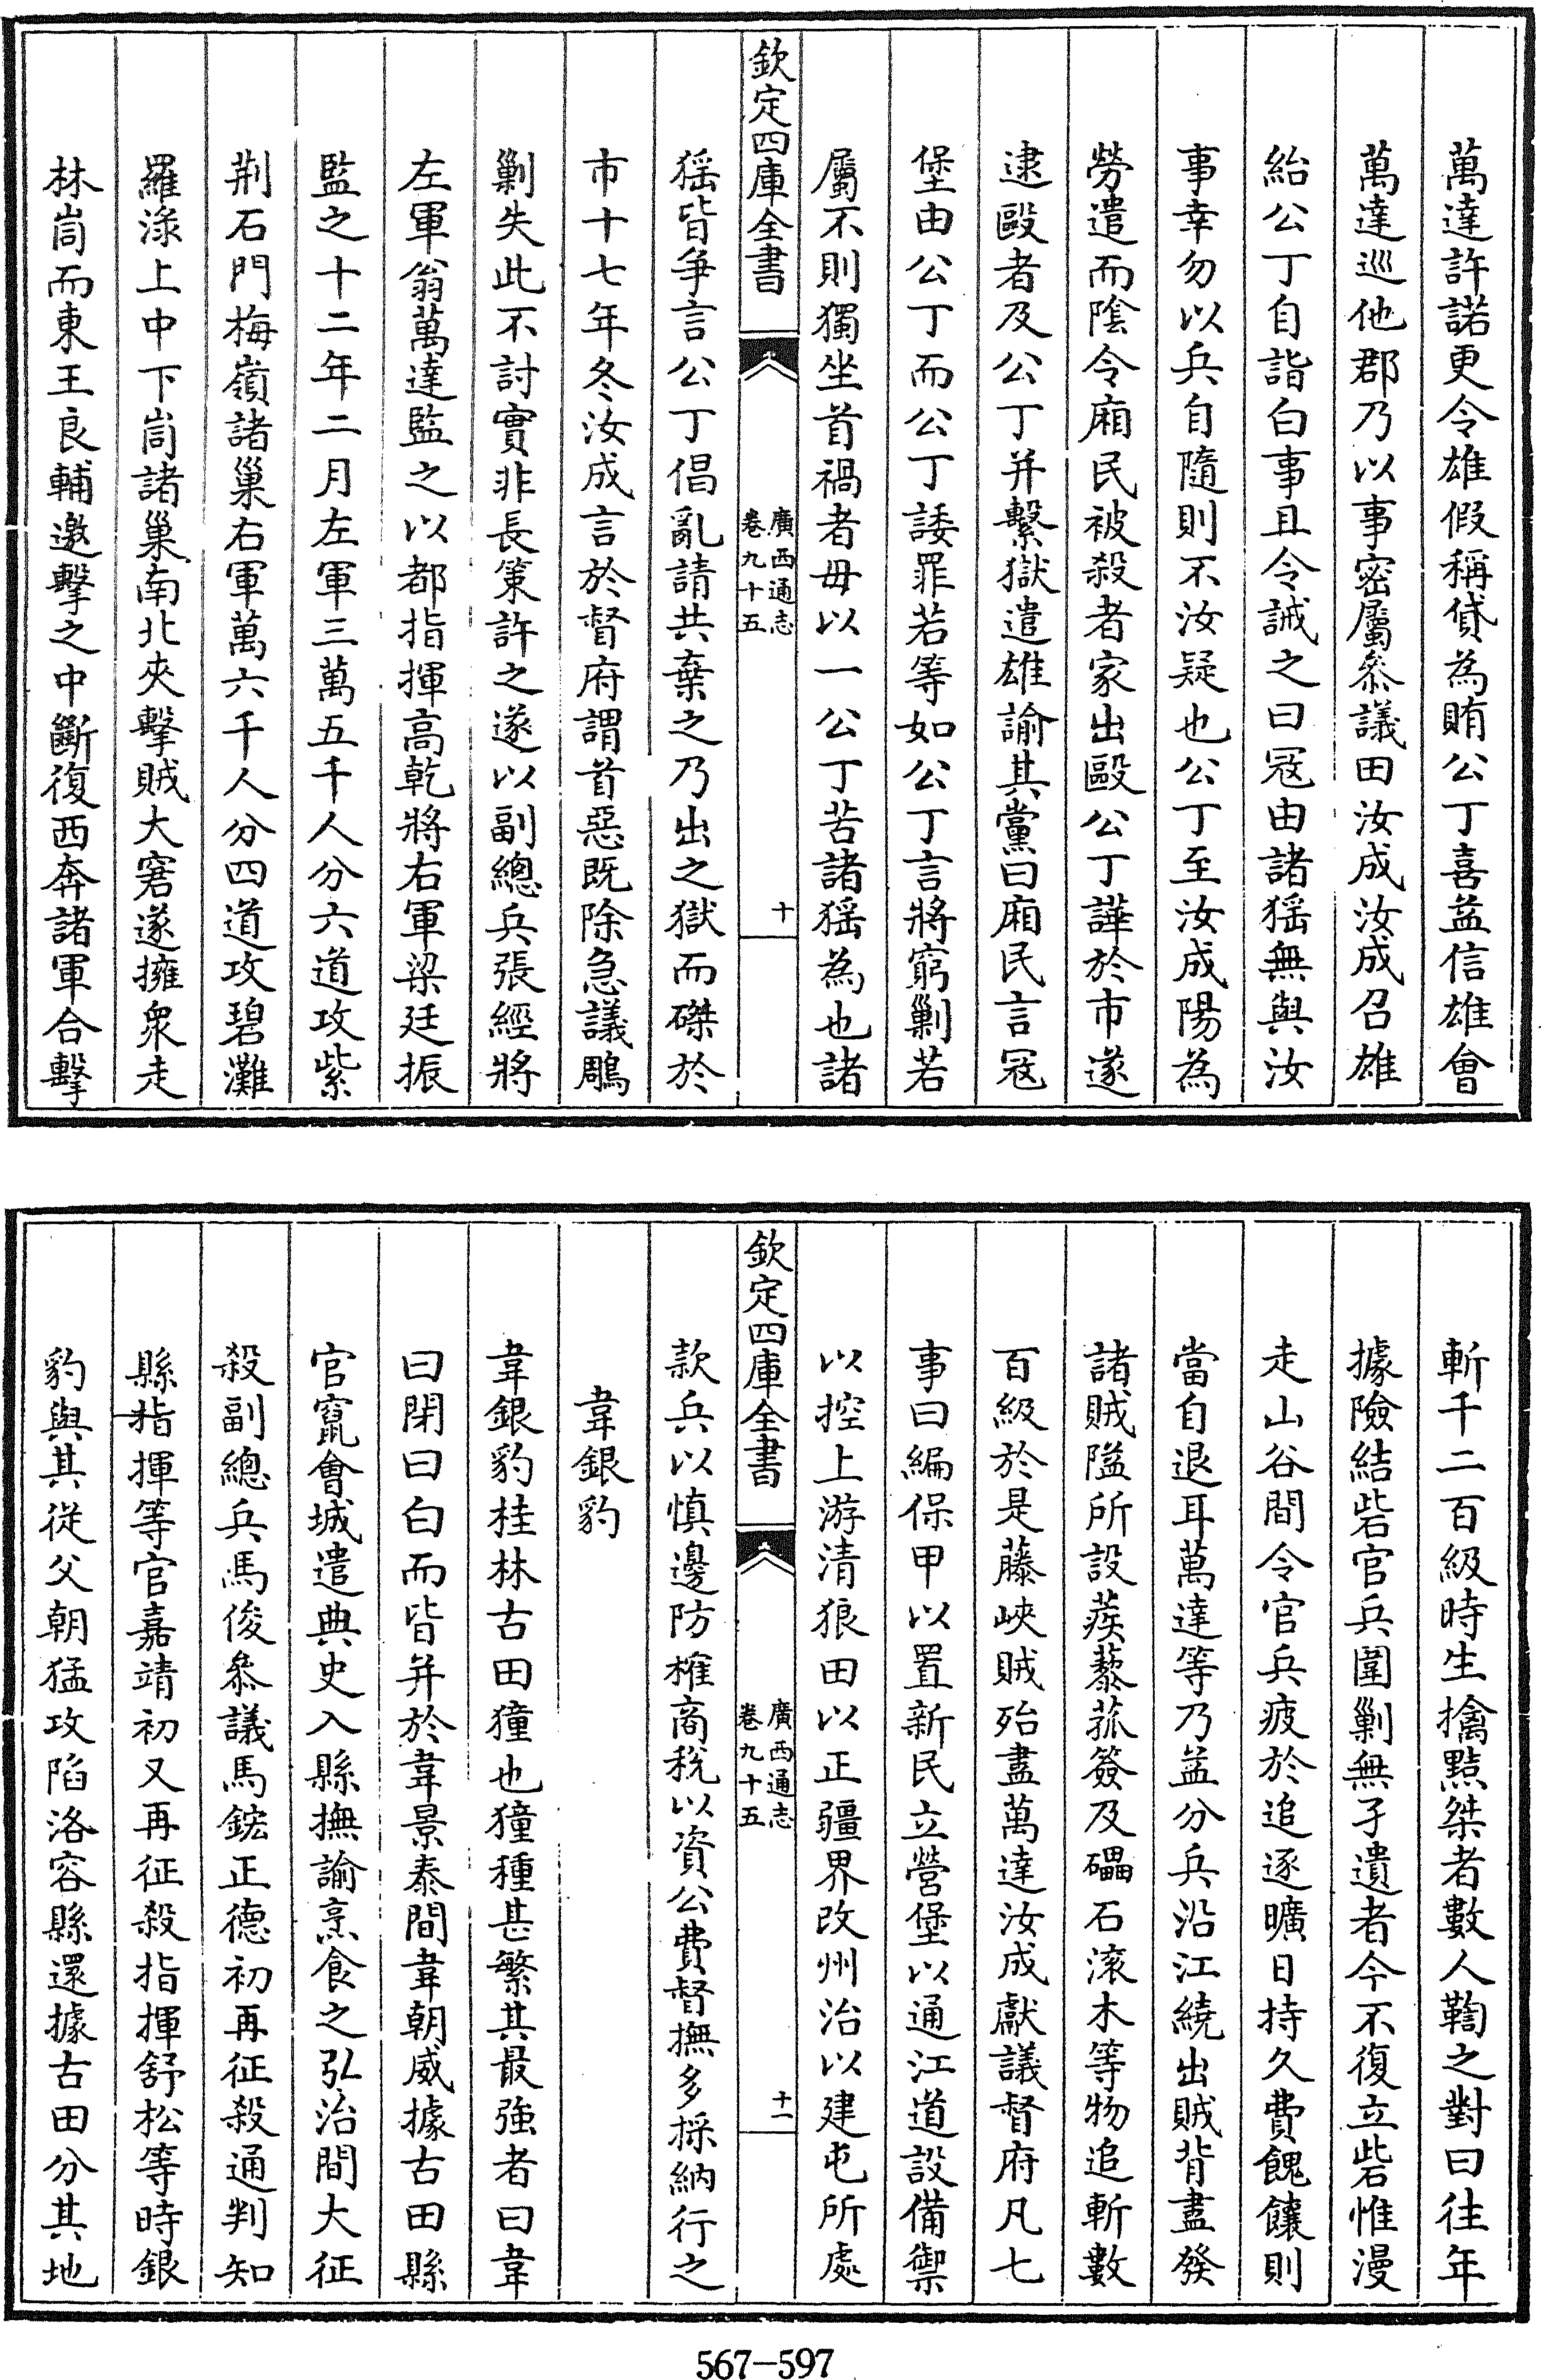 萬達許諾更令雄假稱貸為賄公丁喜益信雄會
萬達巡他郡乃以事密屬叅議田汝成汝成召雄
紿公丁自詣白事且令誡之曰冦由諸猺無與汝
事幸勿以兵自隨則不汝疑也公丁至汝成陽為
勞遣而陰令廂民被殺者家出毆公丁譁於市遂
逮毆者及公丁并繫獄遣雄諭其黨曰廂民言冦
堡由公丁而公丁諉罪若等如公丁言將窮剿若
屬不則獨坐首禍者毋以一公丁苦諸猺為也諸
欽定四庫全書
廣西通志
卷九十五
十
猺皆爭言公丁倡亂請共棄之乃出之獄而磔於
市十七年冬汝成言於督府謂首惡既除急議鵰
剿失此不討實非長策許之遂以副總兵張經將
左軍翁萬達監之以都指揮高乾將右軍梁廷振
監之十二年二月左軍三萬五千人分六道攻紫
荆石門梅嶺諸巢右軍萬六千人分四道攻碧灘
羅渌上中下峝諸巢南北夾擊賊大窘遂擁衆走
林峝而東王良輔邀擊之中斷復西奔諸軍合擊
斬千二百級時生擒黠桀者數人鞫之對曰往年
據險結砦官兵圍剿無孑遺者今不復立砦惟漫
走山谷間令官兵疲於追逐曠日持久費餽饟則
當自退耳萬達等乃益分兵沿江繞出賊背盡發
諸賊隘所設蒺藜菰簽及礧石滚木等物追斬數
百級於是藤峽賊殆盡萬達汝成獻議督府凡七
事曰編保甲以置新民立營堡以通江道設備禦
以控上游清狼田以正疆界改州治以建屯所處
欽定四庫全書
廣西通志
卷九十五
十一
款兵以慎邊防榷商税以資公費督撫多採納行之
韋銀豹
韋銀豹桂林古田獞也獞種甚繁其最強者曰韋
曰閉曰白而皆并於韋景泰間韋朝威據古田縣
官竄會城遣典史入縣撫諭烹食之弘治間大征
殺副總兵馬俊叅議馬鋐正德初再征殺通判知
縣指揮等官嘉靖初又再征殺指揮舒松等時銀
豹與其從父朝猛攻陷洛容縣還據古田分其地
567-597